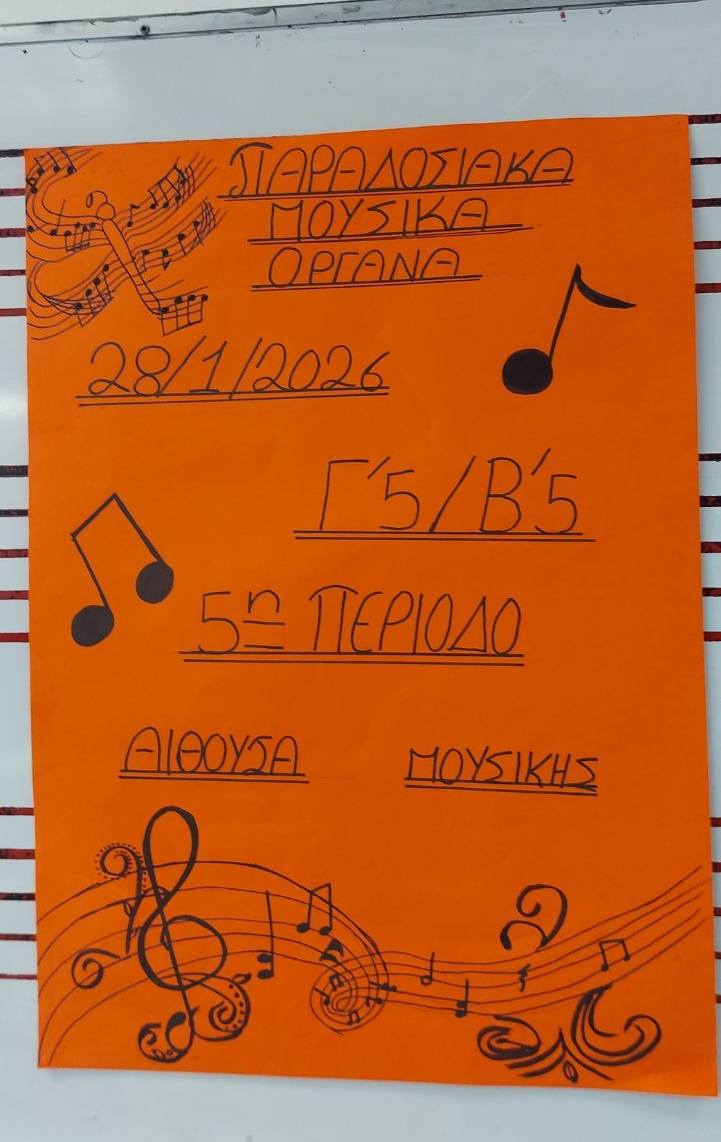 ΠΑΡΑΔΟΣΙΑΚΑ
ΜΟΥΣΙΚΑ
ΟΡΓΑΝΑ
28/1/2026
Γ'5/Β'5
5η ΠΕΡΙΟΔΟ
ΑΙΘΟΥΣΑ ΜΟΥΣΙΚΗΣ